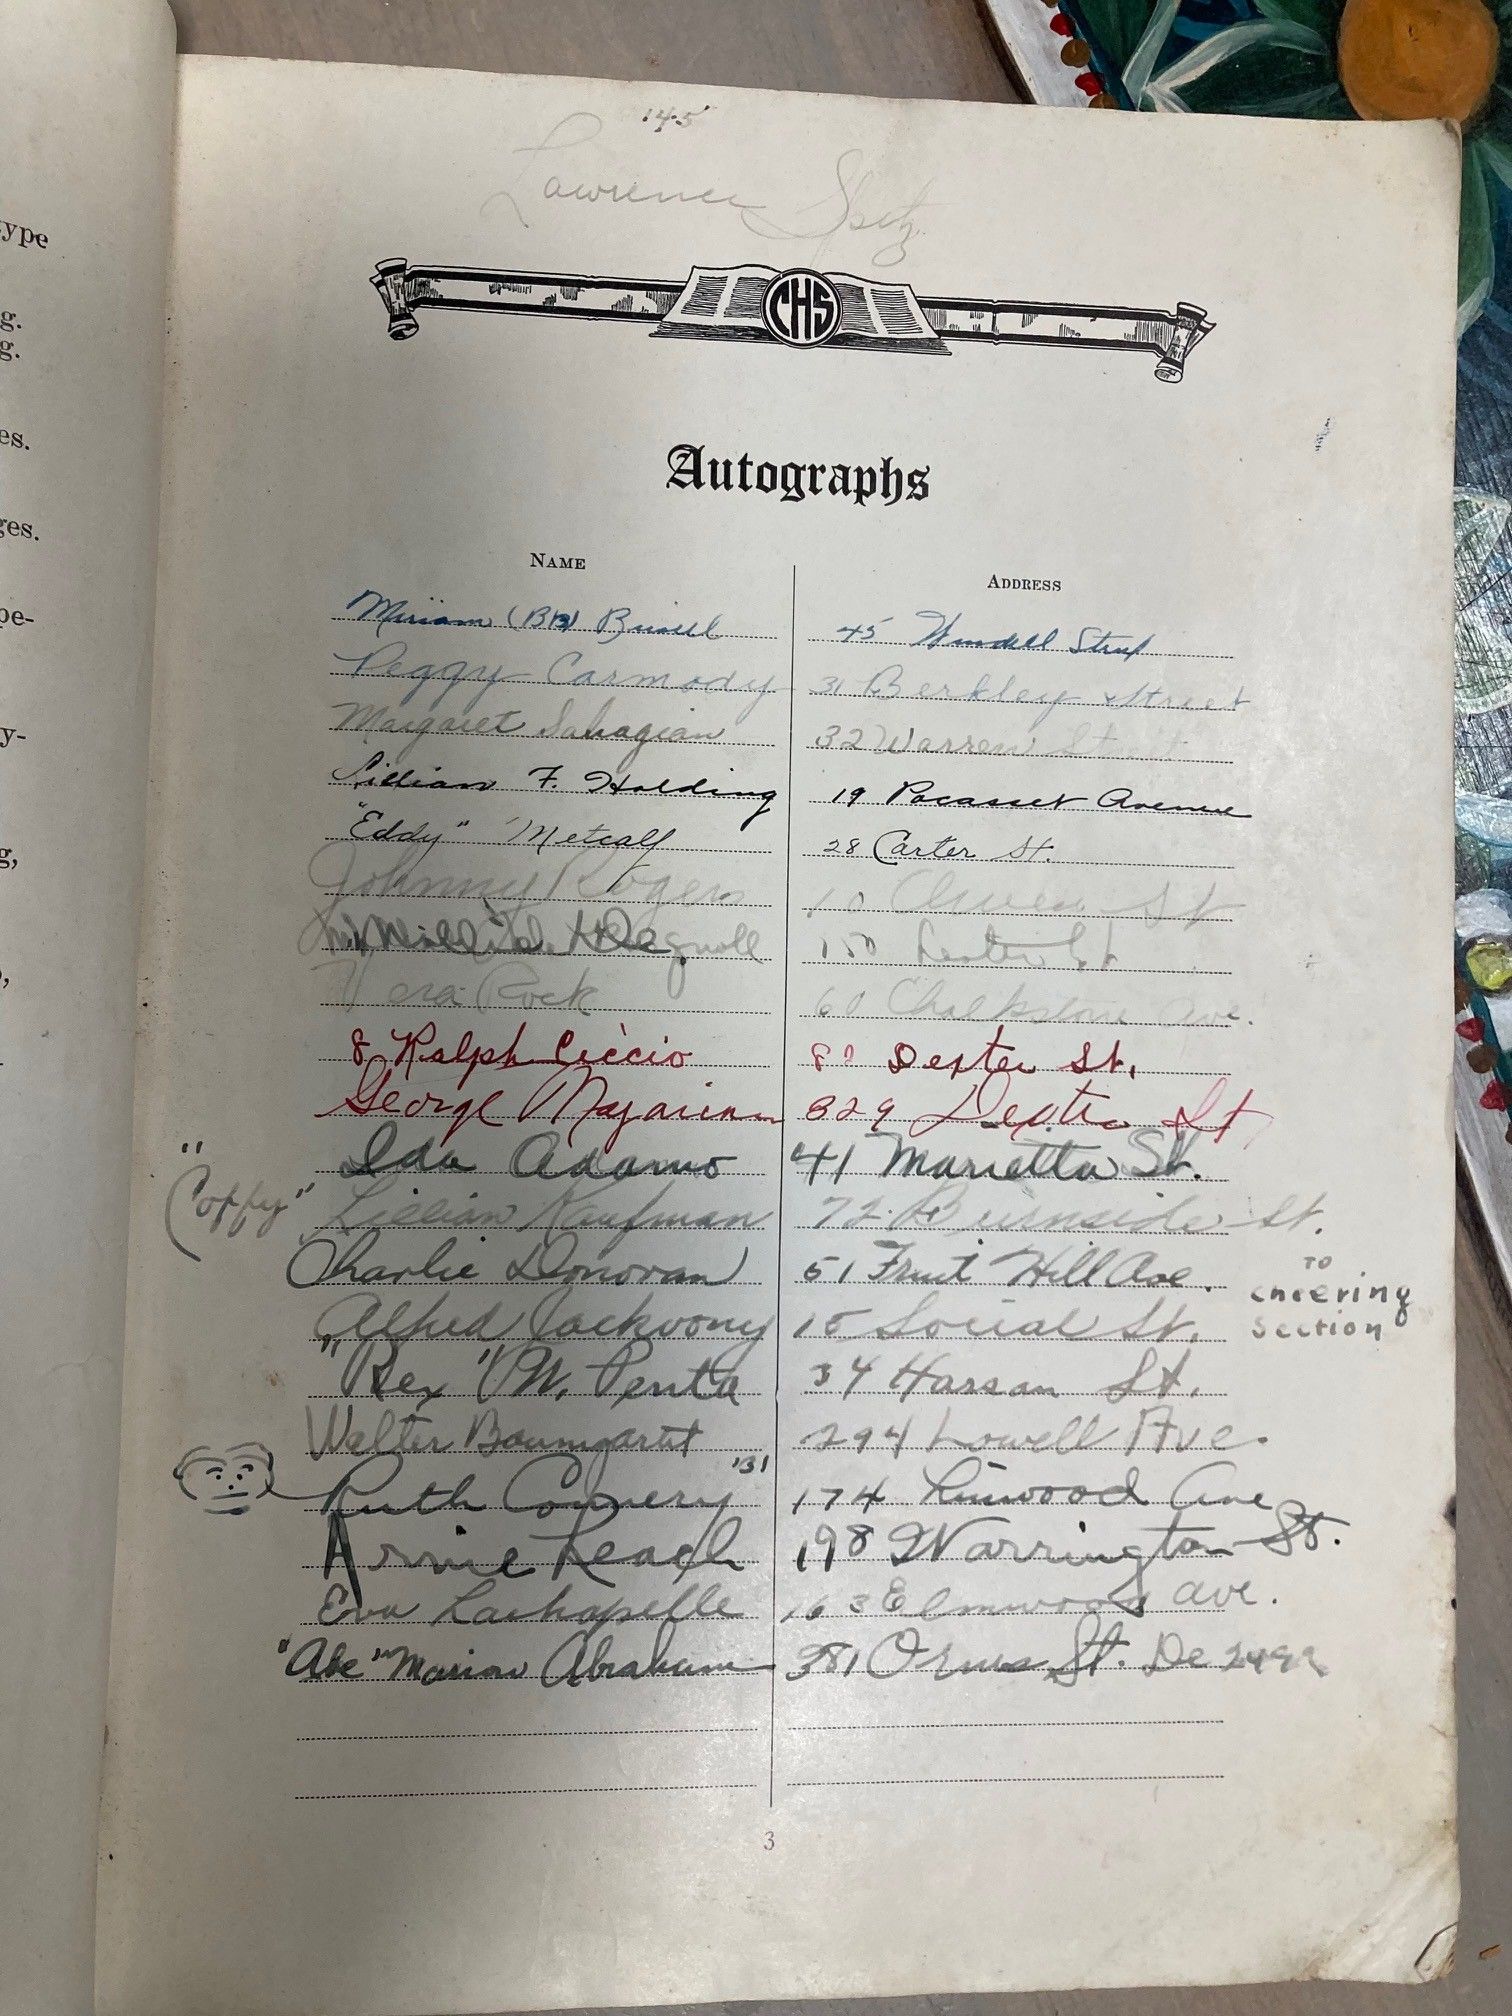 ype
g.
g.
es.
ges.
pe-
y-
g,
'45
Lawrence Spitz
CHS
Autographs
NAME ADDRESS
Miriam (BB) 45 Wendell Street
Peggy Carmody 31 Berkley Street
Margaret Sahagian 32 Warren Street
Lillian F. Holding 19 Pocasset Avenue
"Eddy" Metcalf 28 Carter St.
Johnny Rogers 10 St
150 Lester St
Vera Rock 60 Chalkstone Ave.
8 Ralph Ciccio 82 Dexter St.
George Mazarian 829 Dexter St
Ida Adamo 41 Marietta St.
"Coffey" Lillian Kaufman 72 Burnside St.
Charlie Donovan 51 Fruit Hill Ave.
TO
cheering
section
Alfred Jackvony 15 Social St.
"Rex" M. Penta 34 Harsan St.
Walter Baumgartt 294 Lowell Ave.
Ruth Connery '31 174 Linwood Ave
Annie Leach 198 Warrington St.
Eva Lachapelle 163 Elmwood Ave.
"Abe" Marion Abraham 381 Orms St. De 2499
3